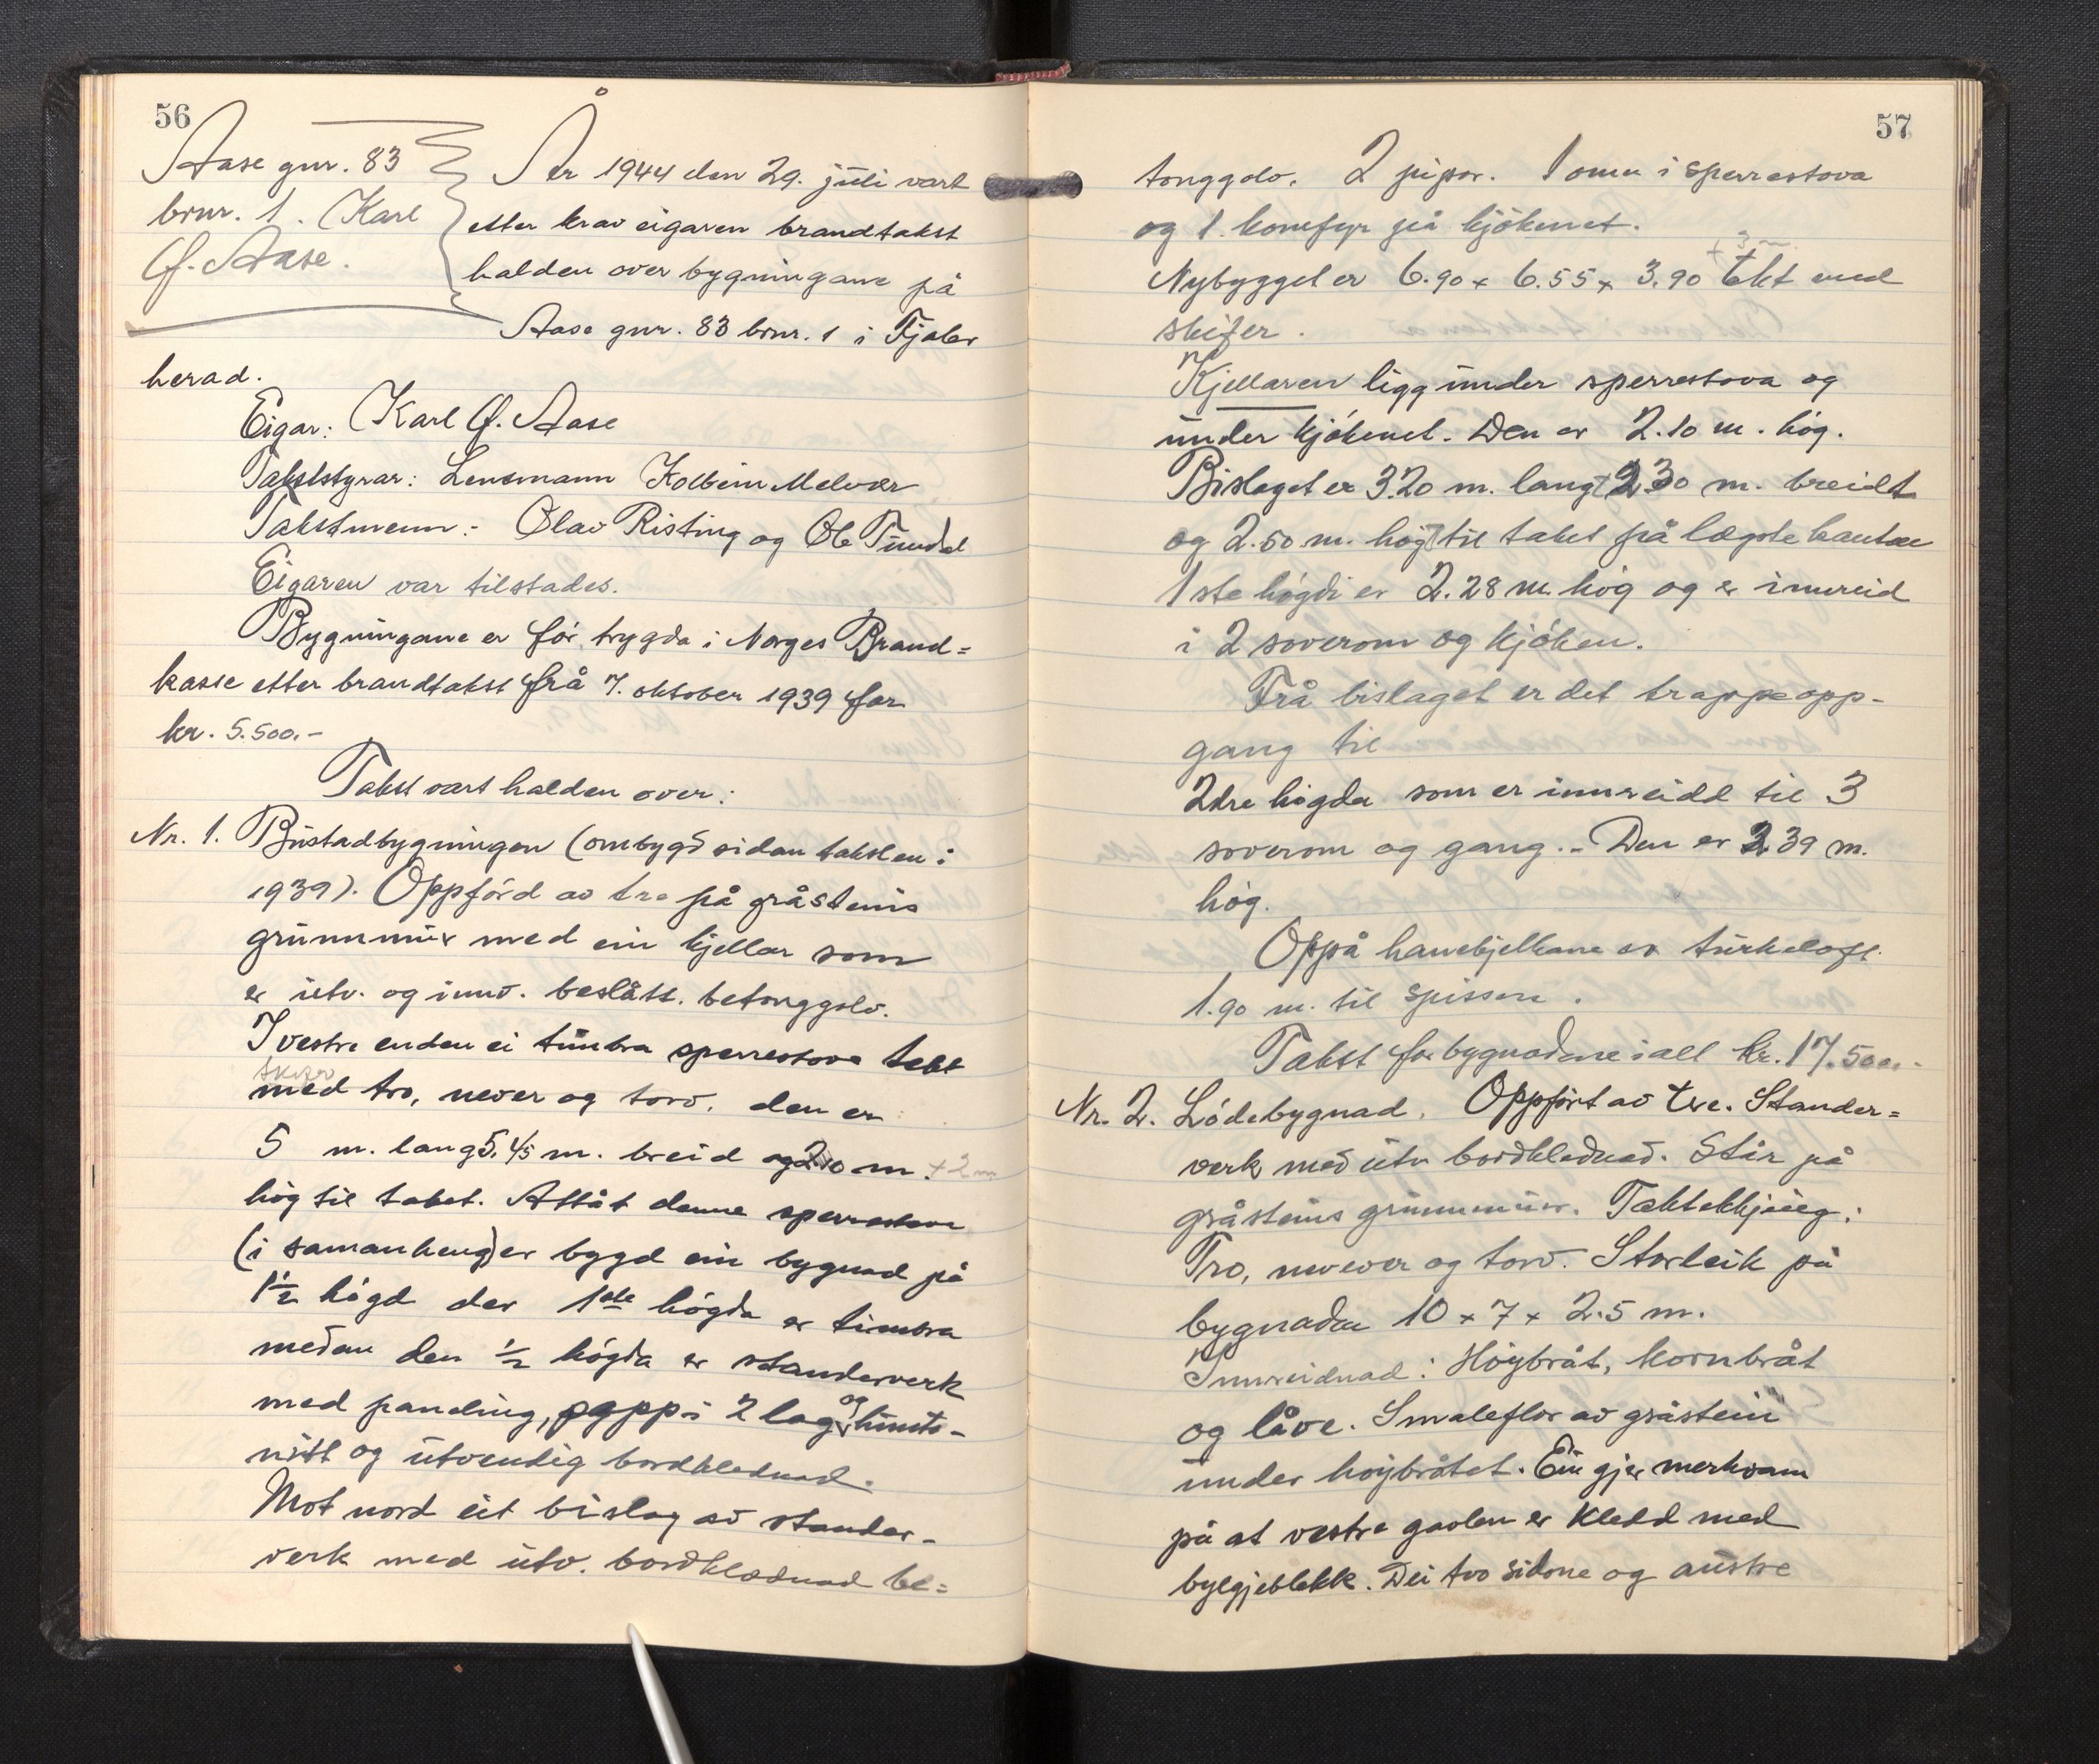 56
Aase gnr. 83
brnr. 1. Karl
J. Aase.
År 1944 den 29. juli vart
etter krav eigaren brandtakst
halden over bygningane på
Aase gnr. 83 brnr. 1 i Fjaler
herad.
Eigar: Karl J. Aase
Takststyrar: Lensmann Kolbein Melvær
Takstmenn: Olav Risting og Ole Tundal
Eigaren var tilstades.
Bygningane er før trygda i Norges Brand=
kasse etter brandtakst frå 7. oktober 1939 for
kr. 5.500.-
Takst vart halden over:
Nr. 1. Bustadbygningen (ombygd sidan taksten i
1939). Oppførd av tre på gråsteins
grunnmur med ein kjellar som
er utv. og innv. beslått. betonggolv.
I vestre enden ei tumbra sperrestove tekt
skifer
med tro, never og torv. den er
5 m. lang 5.45 m. breid og 2.10 m. + 2 m
høg til taket. Attåt denne sperrestova
(i samanheng) er bygd ein bygnad på
1½ høgd der 1ste høgda er timbra
medan den ½ høgda er standerverk
med paneling, papp i 2 lag og hunto-
nitt og utvendig bordklednad.
Mot nord eit bislag av stander-
verk med utv. bordklednad be=
57
tonggolv. 2 piper. 1 omn i sperrestova
og 1 komfyr på kjøkenet.
+ 3 m.
Nybygget er 6.90 x 6.55 x 3.90 tekt med
skifer.
Kjellaren ligg under sperrestova og
under kjøkenet. Den er 2.10 m. høg.
Bislaget er 3.20 m. langt 2.30 m. breidt
og 2.50 m. høgt til taket på lægste kanten
1ste høgdi er 2.28 m. høg og er innreid
i 2 soverom og kjøken.
Frå bislaget er det trappeopp-
gang til
2dre høgda som er innreidd til 3
soverom og gang. - Den er 2 39 m.
høg.
Oppå hanebjelkane er turkeloft.
1.90 m. til spissen.
Takst for bygnadene i alt kr. 17.500.-
Nr. 2. Lødebygnad. Oppført av tre. Stander=
verk med utv bordklednad. Står på
gråsteins grunnmur. Taktekkjing:
Tro, nevever og torv. Storleik på
bygnaden 10 x 7 x 2.5 m.
Innreidnad: Høybråt, kornbråt
og låve. Smaleflor av gråstein
under høybråtet. Ein gjer merksam
på at vestre gavlen er kledd med
bylgjeblekk. Dei tvo sidone og austre